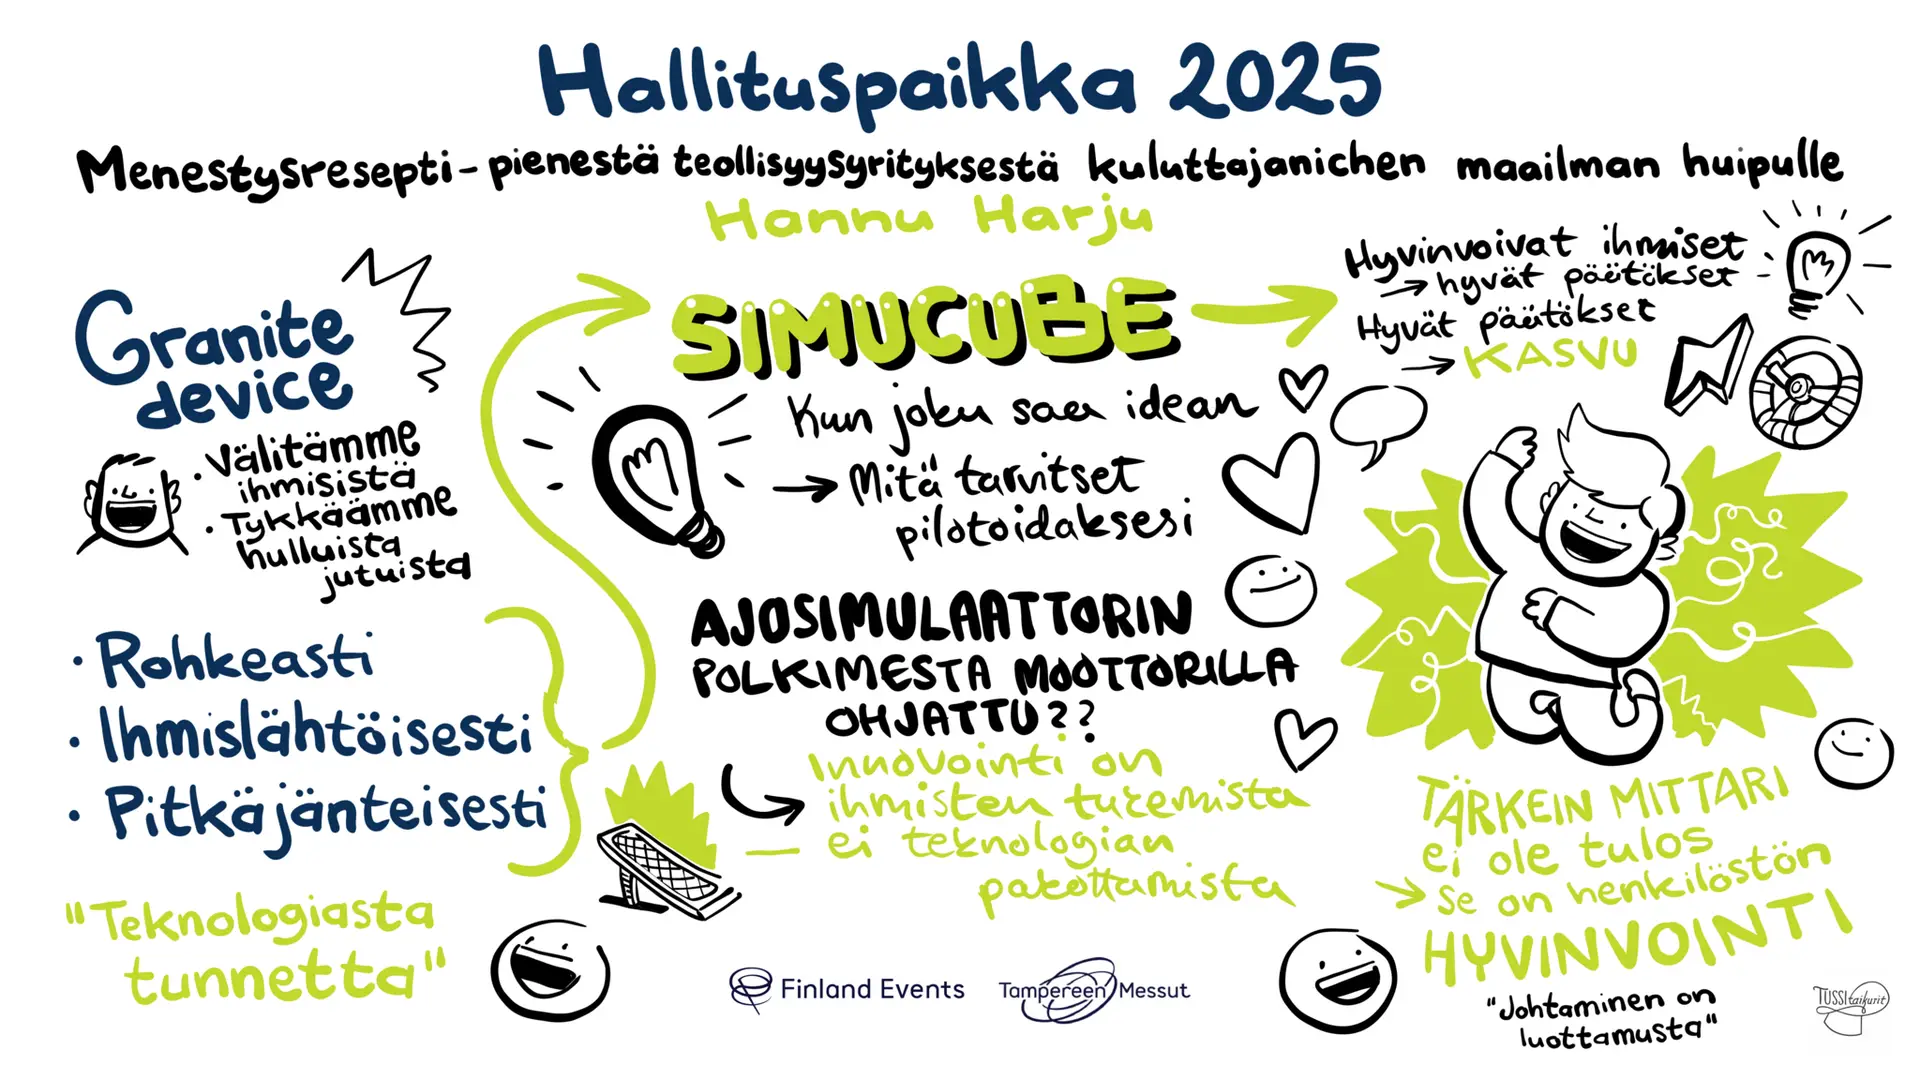 Hallituspaikka 2025
Menestysresepti - pienestä teollisyysyrityksestä kuluttajanichen maailman huipulle
Hannu Harju
Granite
device
• Välitämme
ihmisistä
• Tykkäämme
hulluista
jutuista
• Rohkeasti
• Ihmislähtöisesti
• Pitkäjänteisesti
"Teknologiasta
tunnetta"
SIMUCUBE
Kun joku saa idean
→ Mitä tarvitset
pilotoidaksesi
AJOSIMULAATTORIN
POLKIMESTA MOOTTORILLA
OHJATTU??
Innovointi on
ihmisten tukemista
ei teknologian
pakottamista
Hyvinvoivat ihmiset
→ hyvät päätökset
Hyvät päätökset
→ KASVU
TÄRKEIN MITTARI
ei ole tulos
→ se on henkilöstön
HYVINVOINTI
"Johtaminen on
luottamusta"
Finland Events
Tampereen Messut
TUSSItaikurit